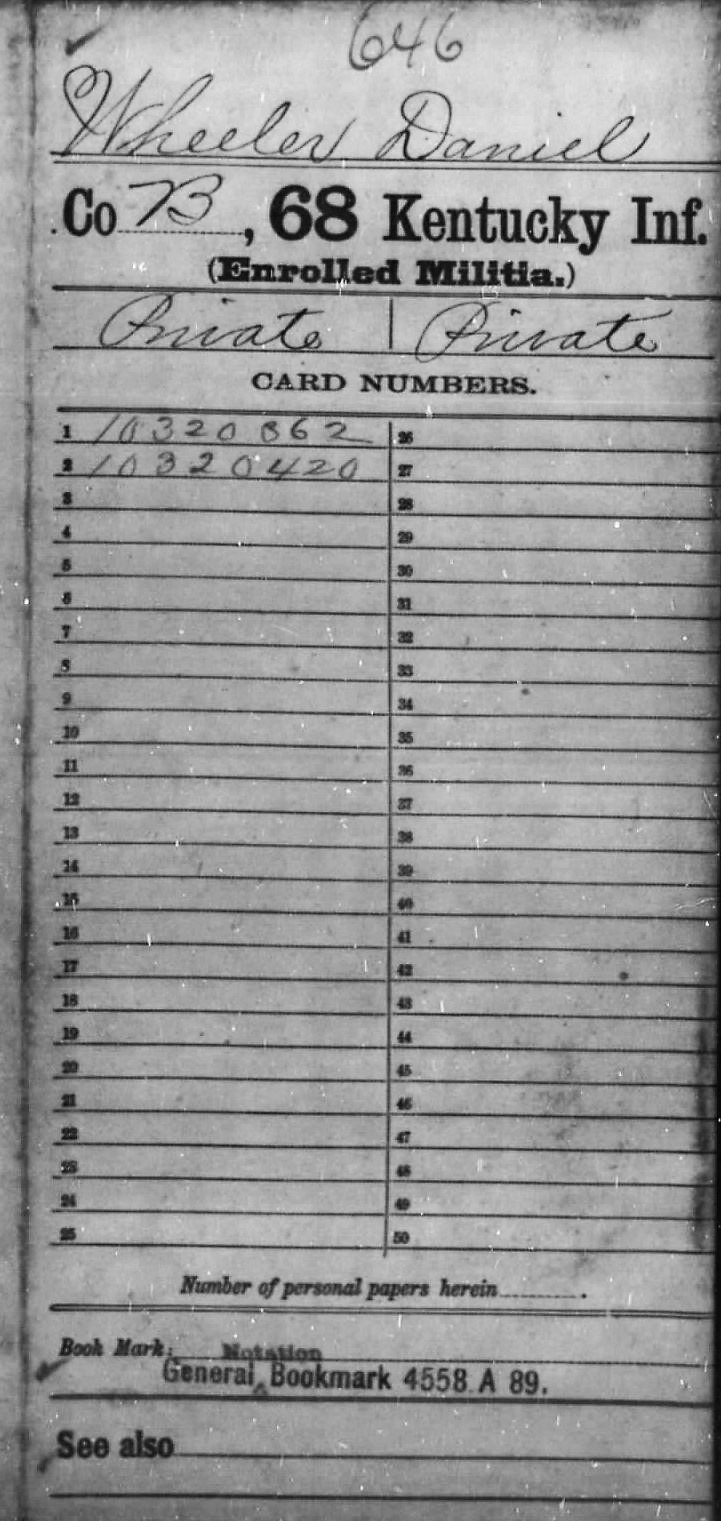 646
Wheeler Daniel
Co B, 68 Kentucky Inf.
(Enrolled Militia.)
Private | Private
CARD NUMBERS.
1 10320362 26
2 10320420 27
3 28
4 29
5 30
6 31
7 32
8 33
9 34
10 35
11 36
12 37
13 38
14 39
15 40
16 41
17 42
18 43
19 44
20 45
21 46
22 47
23 48
24 49
25 50
Number of personal papers herein.
Book Mark: Notation
General ‸ Bookmark 4558 A 89.
See also